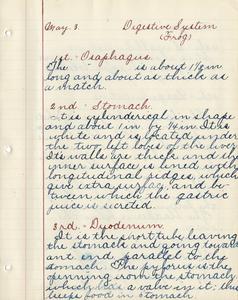 May. 3. Digestive System
(Frog)
1st - Osaphagus.
The " is about 1½ cm
long and about as thick as
a match.
2nd - Stomach.
It is cylinderical in shape
and about 1 in by ¼ in. It is
white and is located under
the two left loves of the liver.
Its walls are thick and the
inner surface is lined with
longitudinal ridges which
give extra surface, and be-
tween which the gastric
juice is secreted.
3rd - Duodenum
It is the short tube leaving
the stomach and going toward
ant end parallel to the
stomach. The pylorus is the
opening from the stomach
which has a valve in it, this
keeps food in stomach